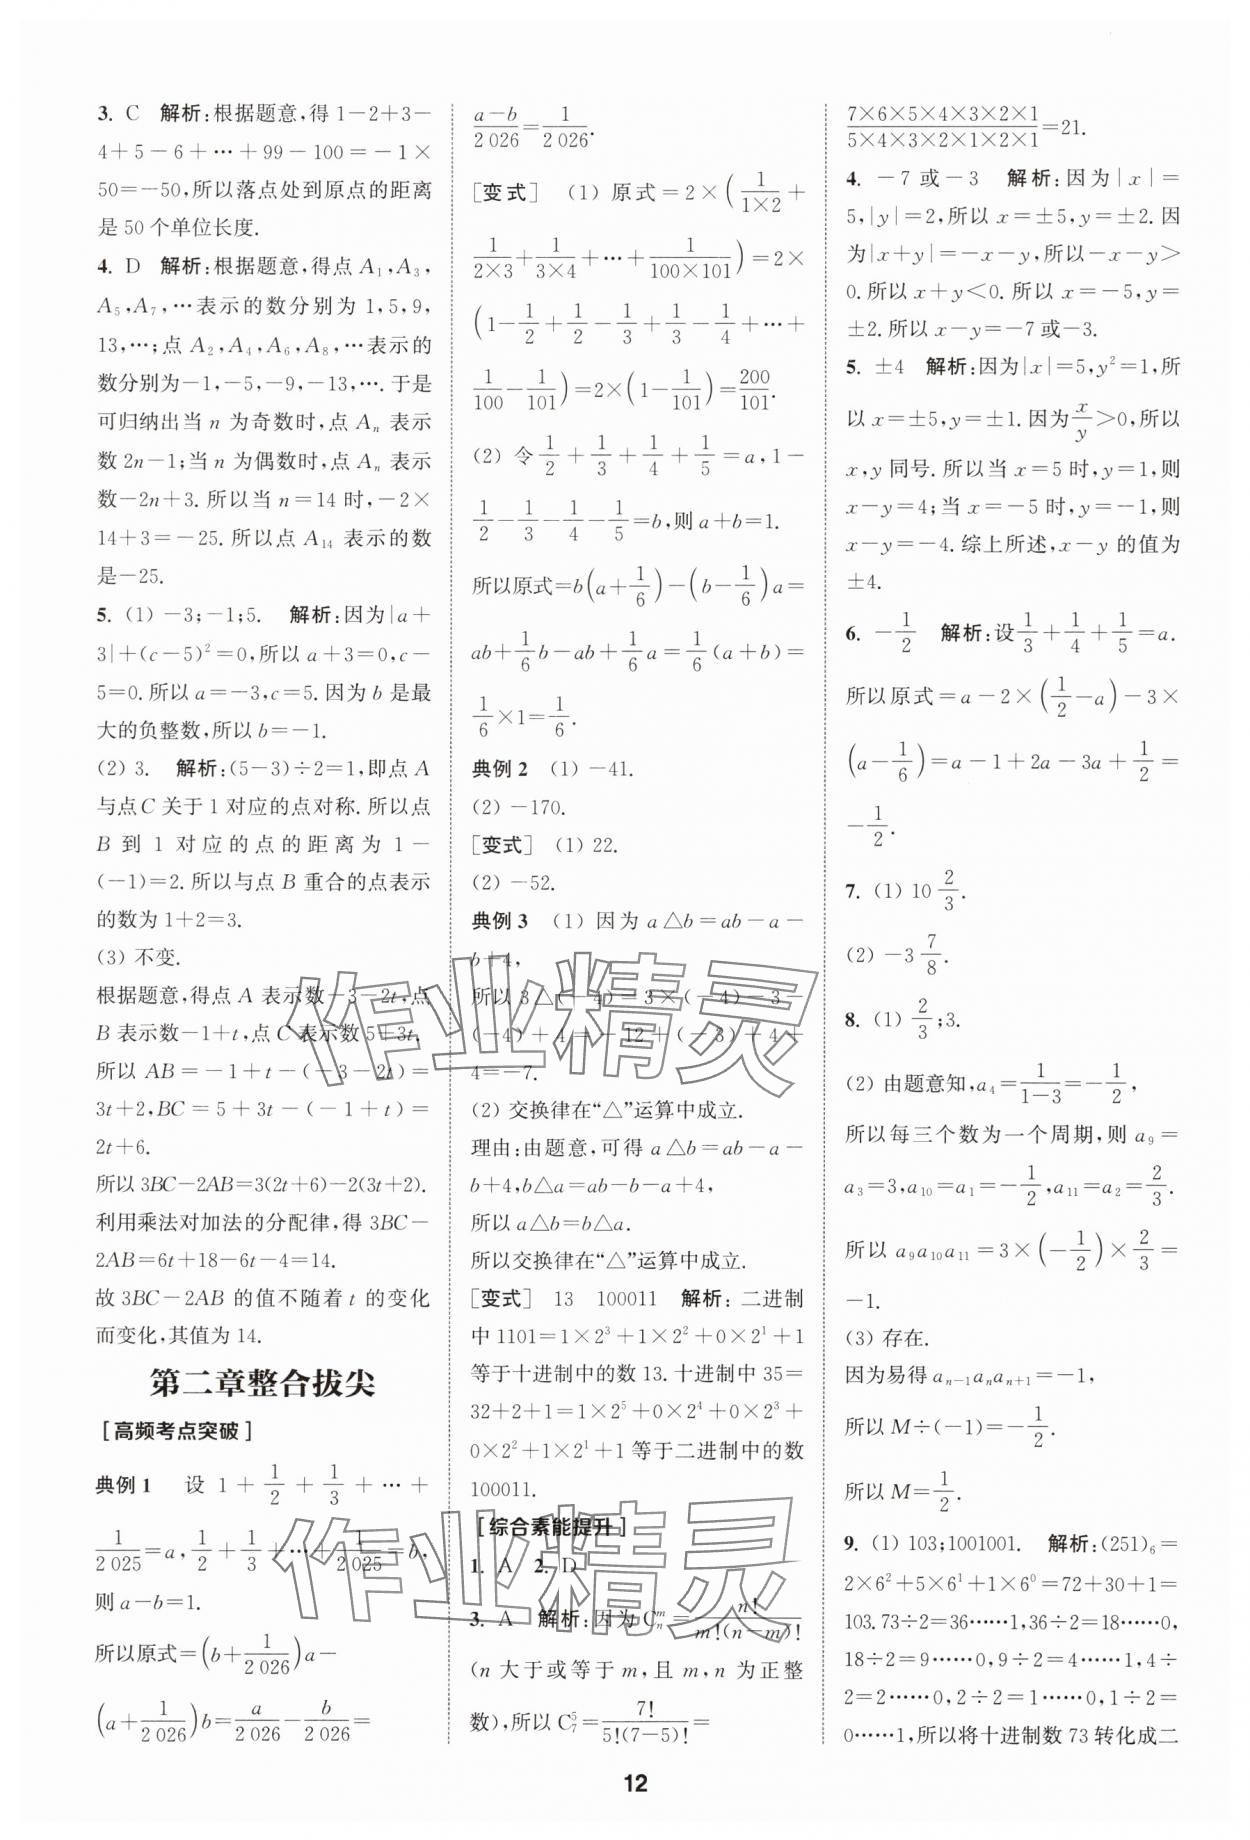 3. C 解析:根据题意,得 1-2+3-
4+5-6+…+99-100=-1×
50=-50,所以落点处到原点的距离
是 50 个单位长度.
4. D 解析:根据题意,得点 A₁,A₃,
A₅,A₇,…表示的数分别为 1,5,9,
13,…;点 A₂,A₄,A₆,A₈,…表示的
数分别为-1,-5,-9,-13,…. 于是
可归纳出当 n 为奇数时,点 Aₙ 表示
数 2n-1;当 n 为偶数时,点 Aₙ 表示
数-2n+3. 所以当 n=14 时,-2×
14+3=-25. 所以点 A₁₄ 表示的数
是-25.
5. (1) -3;-1;5. 解析:因为|a+
3|+(c-5)²=0,所以 a+3=0,c-
5=0. 所以 a=-3,c=5. 因为 b 是最
大的负整数,所以 b=-1.
(2) 3. 解析:(5-3)÷2=1,即点 A
与点 C 关于 1 对应的点对称. 所以点
B 到 1 对应的点的距离为 1-
(-1)=2. 所以与点 B 重合的点表示
的数为 1+2=3.
(3) 不变.
根据题意,得点 A 表示数-3-2t,点
B 表示数-1+t,点 C 表示数 5+3t,
所以 AB=-1+t-(-3-2t)=
3t+2,BC=5+3t-(-1+t)=
2t+6.
所以 3BC-2AB=3(2t+6)-2(3t+2).
利用乘法对加法的分配律,得 3BC-
2AB=6t+18-6t-4=14.
故 3BC-2AB 的值不随着 t 的变化
而变化,其值为 14.
第二章整合拔尖
[高频考点突破]
典例 1 设 1+1/2+1/3+…+
1/2 025=a,1/2+1/3+…+1/2 025=b,
则 a-b=1.
所以原式=(b+1/2 026)a-
(a+1/2 026)b=a/2 026-b/2 026=
(a-b)/2 026=1/2 026.
[变式] (1) 原式=2×(1/(1×2)+
1/(2×3)+1/(3×4)+…+1/(100×101))=2×
(1-1/2+1/2-1/3+1/3-1/4+…+
1/100-1/101)=2×(1-1/101)=200/101.
(2) 令 1/2+1/3+1/4+1/5=a,1-
1/2-1/3-1/4-1/5=b,则 a+b=1.
所以原式=b(a+1/6)-(b-1/6)a=
ab+1/6b-ab+1/6a=1/6(a+b)=
1/6×1=1/6.
典例 2 (1) -41.
(2) -170.
[变式] (1) 22.
(2) -52.
典例 3 (1) 因为 a△b=ab-a-
b+4,
所以 3△(-4)=3×(-4)-3-
(-4)+4=-12+(-3)+4+
4=-7.
(2) 交换律在“△”运算中成立.
理由:由题意,可得 a△b=ab-a-
b+4,b△a=ab-b-a+4,
所以 a△b=b△a.
所以交换律在“△”运算中成立.
[变式] 13 100011 解析:二进制
中 1101=1×2³+1×2²+0×2¹+1
等于十进制中的数 13. 十进制中 35=
32+2+1=1×2⁵+0×2⁴+0×2³+
0×2²+1×2¹+1 等于二进制中的数
100011.
[综合素能提升]
1. A 2. D
3. A 解析:因为 Cₙᵐ=n!/(m!(n-m)!)
(n 大于或等于 m,且 m,n 为正整
数),所以 C₇⁵=7!/(5!(7-5)!)=
(7×6×5×4×3×2×1)/(5×4×3×2×1×2×1)=21.
4. -7 或-3 解析:因为|x|=
5,|y|=2,所以 x=±5,y=±2. 因
为|x+y|=-x-y,所以-x-y>
0. 所以 x+y<0. 所以 x=-5,y=
±2. 所以 x-y=-7 或-3.
5. ±4 解析:因为|x|=5,y²=1,所
以 x=±5,y=±1. 因为x/y>0,所以
x,y 同号. 所以当 x=5 时,y=1,则
x-y=4;当 x=-5 时,y=-1,则
x-y=-4. 综上所述,x-y 的值为
±4.
6. -1/2 解析:设1/3+1/4+1/5=a.
所以原式=a-2×(1/2-a)-3×
(a-1/6)=a-1+2a-3a+1/2=
-1/2.
7. (1) 10 2/3.
(2) -3 7/8.
8. (1) 2/3;3.
(2) 由题意知,a₄=1/(1-3)=-1/2,
所以每三个数为一个周期,则 a₉=
a₃=3,a₁₀=a₁=-1/2,a₁₁=a₂=2/3.
所以 a₉a₁₀a₁₁=3×(-1/2)×2/3=
-1.
(3) 存在.
因为易得 aₙ₋₁aₙaₙ₊₁=-1,
所以 M÷(-1)=-1/2.
所以 M=1/2.
9. (1) 103;1001001. 解析:(251)₆=
2×6²+5×6¹+1×6⁰=72+30+1=
103. 73÷2=36……1,36÷2=18……0,
18÷2=9……0,9÷2=4……1,4÷
2=2……0,2÷2=1……0,1÷2=
0……1,所以将十进制数 73 转化成二
12
作业精灵
作业精灵